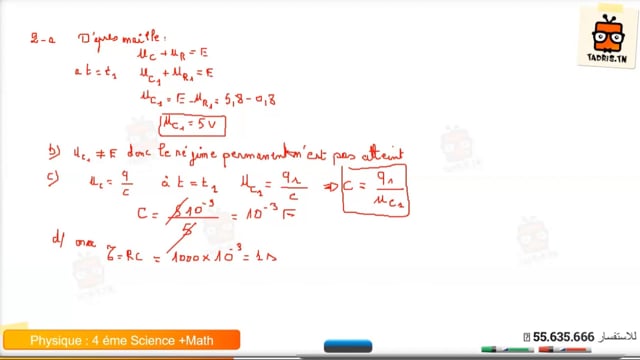 2-a D'après maille:
u_C + u_R = E
à t = t₁ u_C₁ + u_R₁ = E
u_C₁ = E - u_R₁ = 5,8 - 0,8
u_C₁ = 5 V
b) u_C₁ ≠ E donc le régime permanent n'est pas atteint
c) u_C = q/c à t = t₁ u_C₁ = q₁/c ⇒ C = q₁/u_C₁
C = 5 10⁻³/5 = 10⁻³ F
d/ on a
τ = RC = 1000 × 10⁻³ = 1 s
TADRIS.TN
Physique : 4 éme Science +Math
للاستفسار 55.635.666